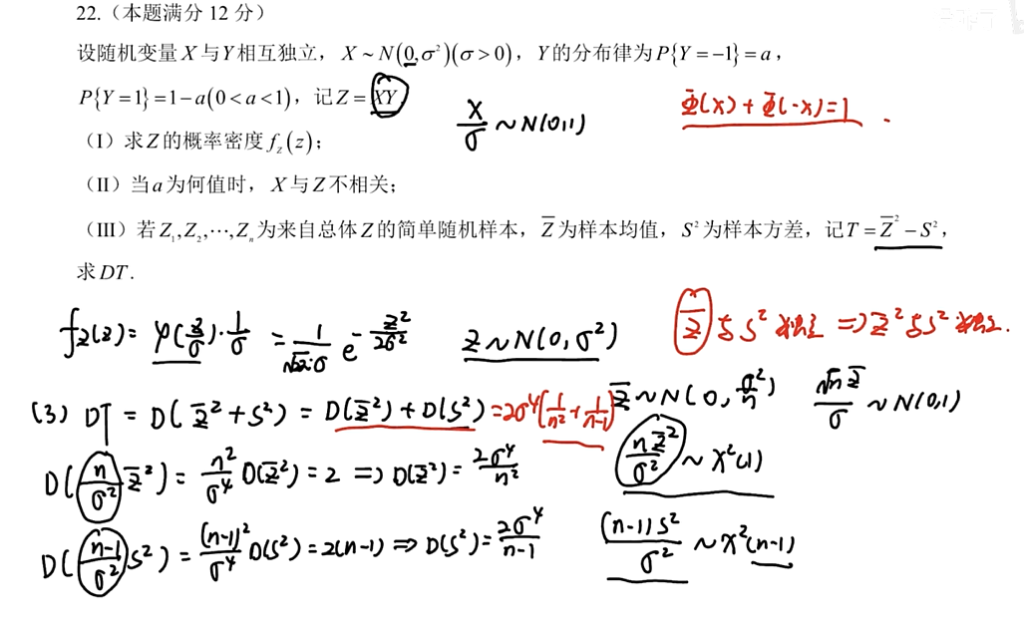 22.（本题满分 12 分）
设随机变量 X 与 Y 相互独立，X ~ N(0,σ²)(σ>0)，Y 的分布律为 P{Y=-1}=a，
P{Y=1}=1-a(0<a<1)，记 Z=XY
X/σ ~ N(0,1)
Φ(x)+Φ(-x)=1
（I）求 Z 的概率密度 f_z(z)；
（II）当 a 为何值时，X 与 Z 不相关；
（III）若 Z₁,Z₂,⋯,Zₙ 为来自总体 Z 的简单随机样本，Z̄ 为样本均值，S² 为样本方差，记 T=Z̄²-S²，
求 DT.
f_Z(z)= φ(z/σ)·1/σ = 1/(√2π·σ) e^(-z²/2σ²)
Z~N(0,σ²)
Z̄ 与 S² 独立 ⇒ Z̄² 与 S² 独立.
(3) DT = D(Z̄²+S²) = D(Z̄²)+D(S²) =2σ⁴(1/n²+1/(n-1))
Z̄~N(0,σ²/n)
√n Z̄/σ ~N(0,1)
D(n/σ² Z̄²)= n²/σ⁴ D(Z̄²)=2 ⇒ D(Z̄²)= 2σ⁴/n²
nZ̄²/σ² ~ χ²(1)
D((n-1)/σ² S²) = (n-1)²/σ⁴ D(S²)=2(n-1) ⇒ D(S²)= 2σ⁴/(n-1)
(n-1)S²/σ² ~ χ²(n-1)